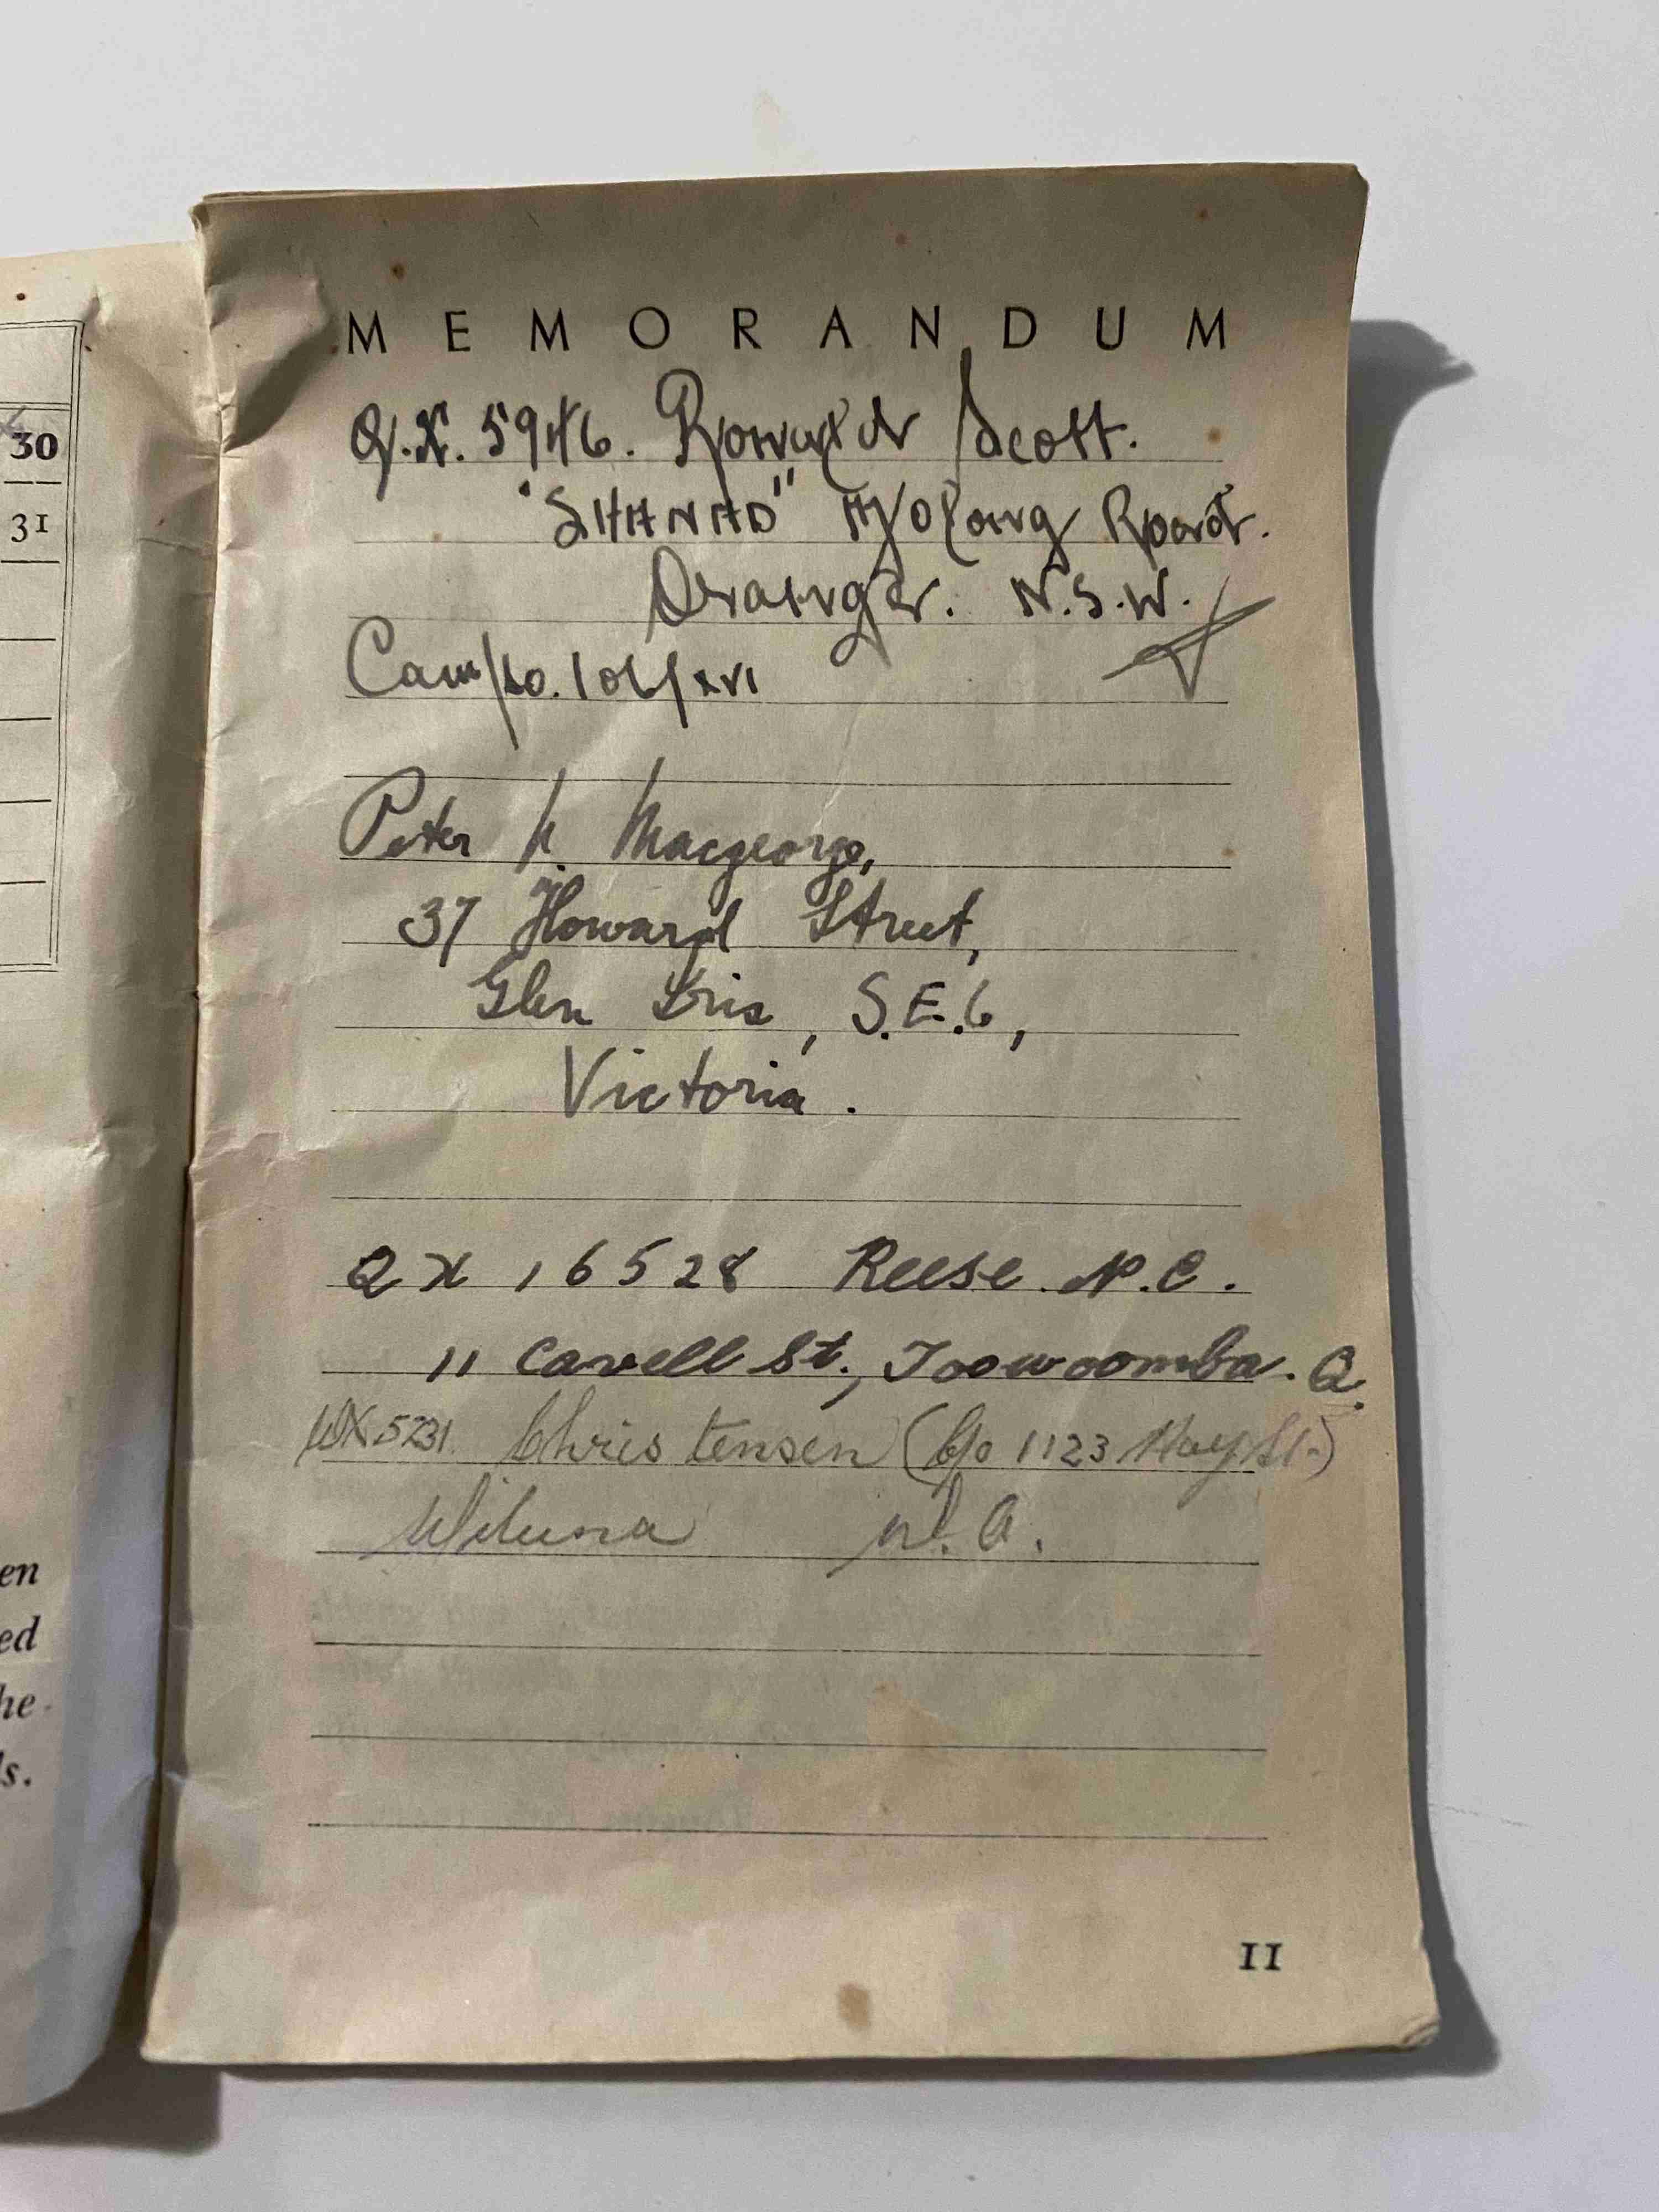 30
31
en
ed
he
ls.
MEMORANDUM
Q.X. 5946. Ronald Scott.
"SHANAD" Molong Road.
Orange. N.S.W.
Peter N. Macgeorge,
37 Howard Street,
Glen Iris, S.E.6,
Victoria.
QX 16528 Reese N.C.
11 Cavell St., Toowoomba. Q.
WX5231 Christensen (C/o 1123 Hay St.)
Wiluna W.A.
11